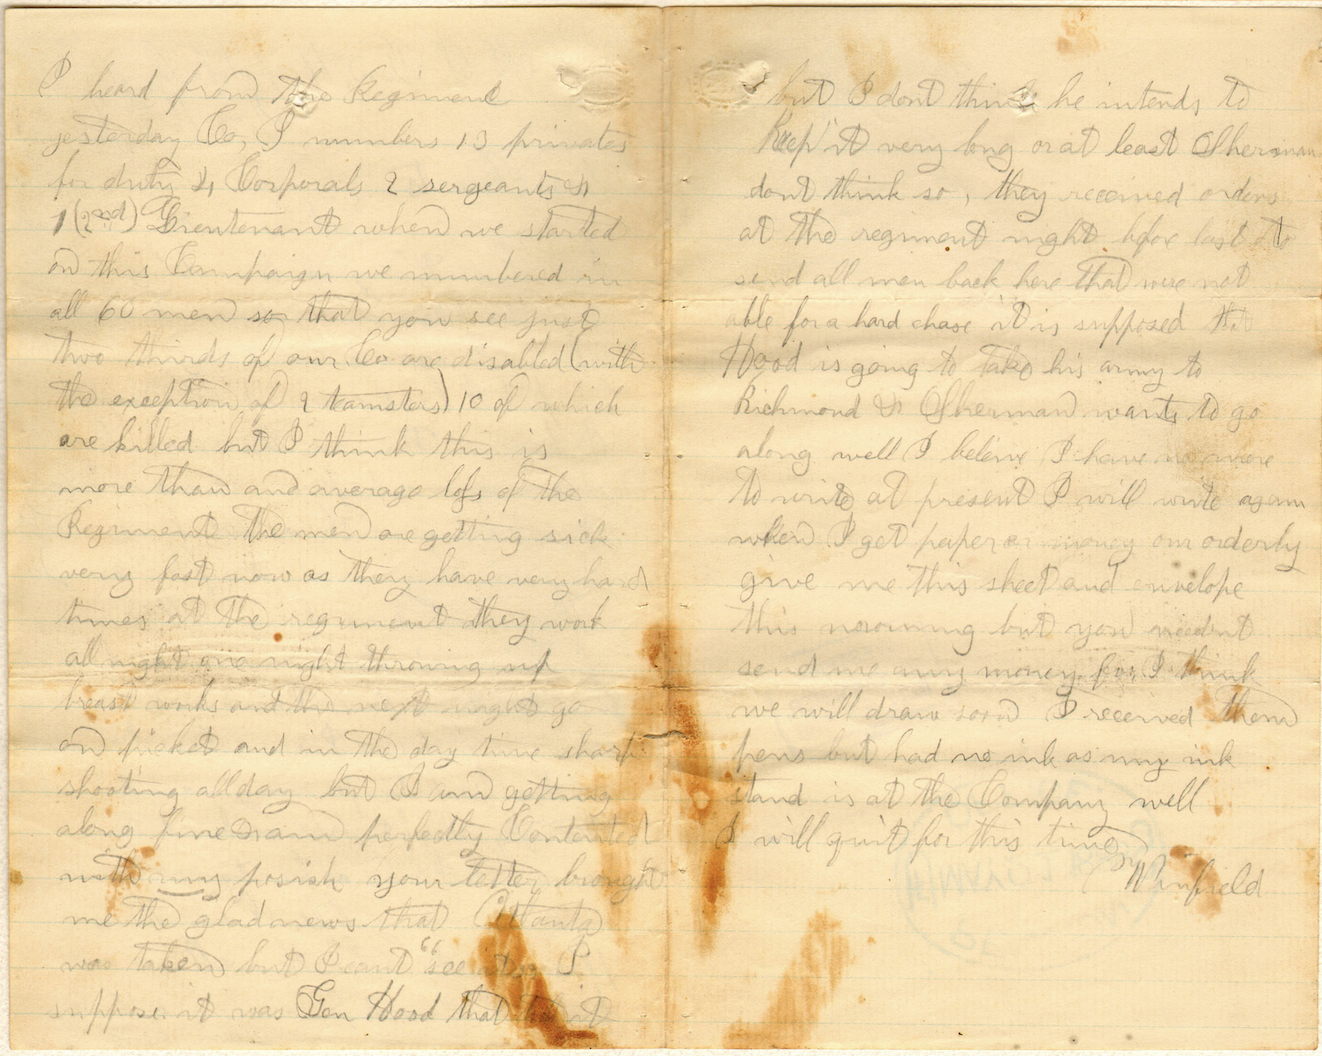 I heard from the Regiment
yesterday Co, I numbers 13 privates
for duty 4 Corporals 2 sergeants &
1 (2nd) Lieutenant when we started
on this Campaign we numbered in
all 60 men so that you see just
two thirds of our Co are disabled (with
the exception of 2 teamsters) 10 of which
are killed but I think this is
more than and average loss of the
Regiment the men are getting sick
very fast now as they have very hard
times at the regiment they work
all night one night throwing up
breast works and the next night go
on picket and in the day time sharp
shooting all day but I am getting
along fine am perfectly Contented
with my posish your letter brought
me the glad news that Atlanta
was taken but I cant "see it" I
suppose it was Gen Hood that
but I dont think he intends to
keep it very long or at least Sherman
dont think so, they received orders
at the regiment night before last to
send all men back here that were not
able for a hard chase it is supposed that
Hood is going to take his army to
Richmond & Sherman wants to go
along well I believe I have no more
to write at present I will write again
when I get paper or money our orderly
give me this sheet and envelope
this morning but you neednt
send me any money for I think
we will draw soon I received them
pens but had no ink as my ink
stand is at the Company well
I will quit for this time
Winfield